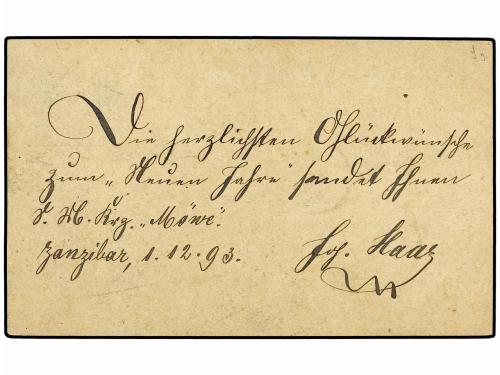 Die herzlichsten Glückwünsche
zum „Neuen Jahre“ sendet Ihnen
S. M. Krz. „Möwe“.
Zanzibar, 1.12.93.
Jos. Haas